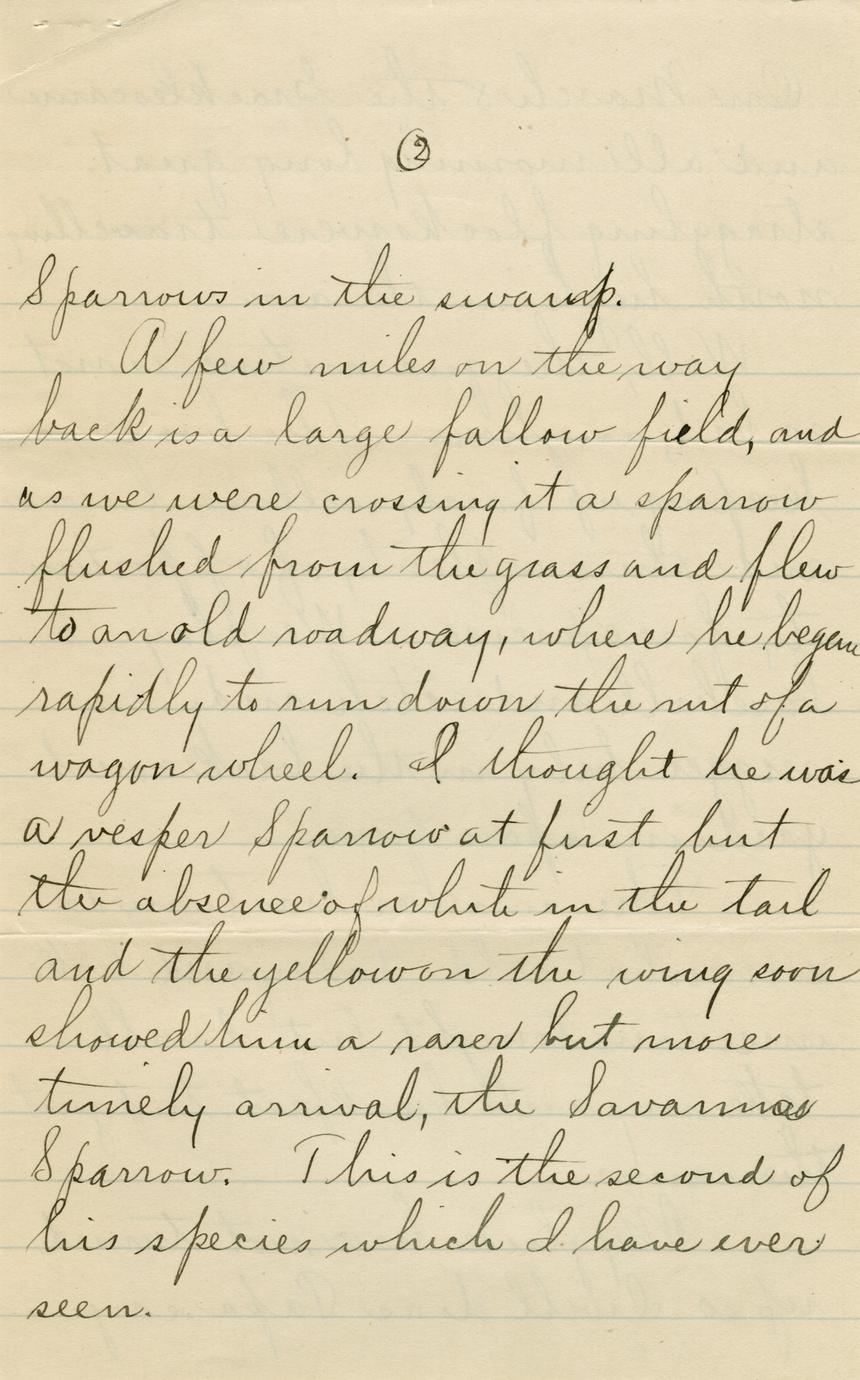 2
Sparrows in the swamp.
A few miles on the way
back is a large fallow field, and
as we were crossing it a sparrow
flushed from the grass and flew
to an old roadway, where he began
rapidly to run down the rut of a
wagon wheel. I thought he was
a vesper Sparrow at first but
the absence of white in the tail
and the yellow on the wing soon
showed him a rarer but more
timely arrival, the Savannas
Sparrow. This is the second of
his species which I have ever
seen.